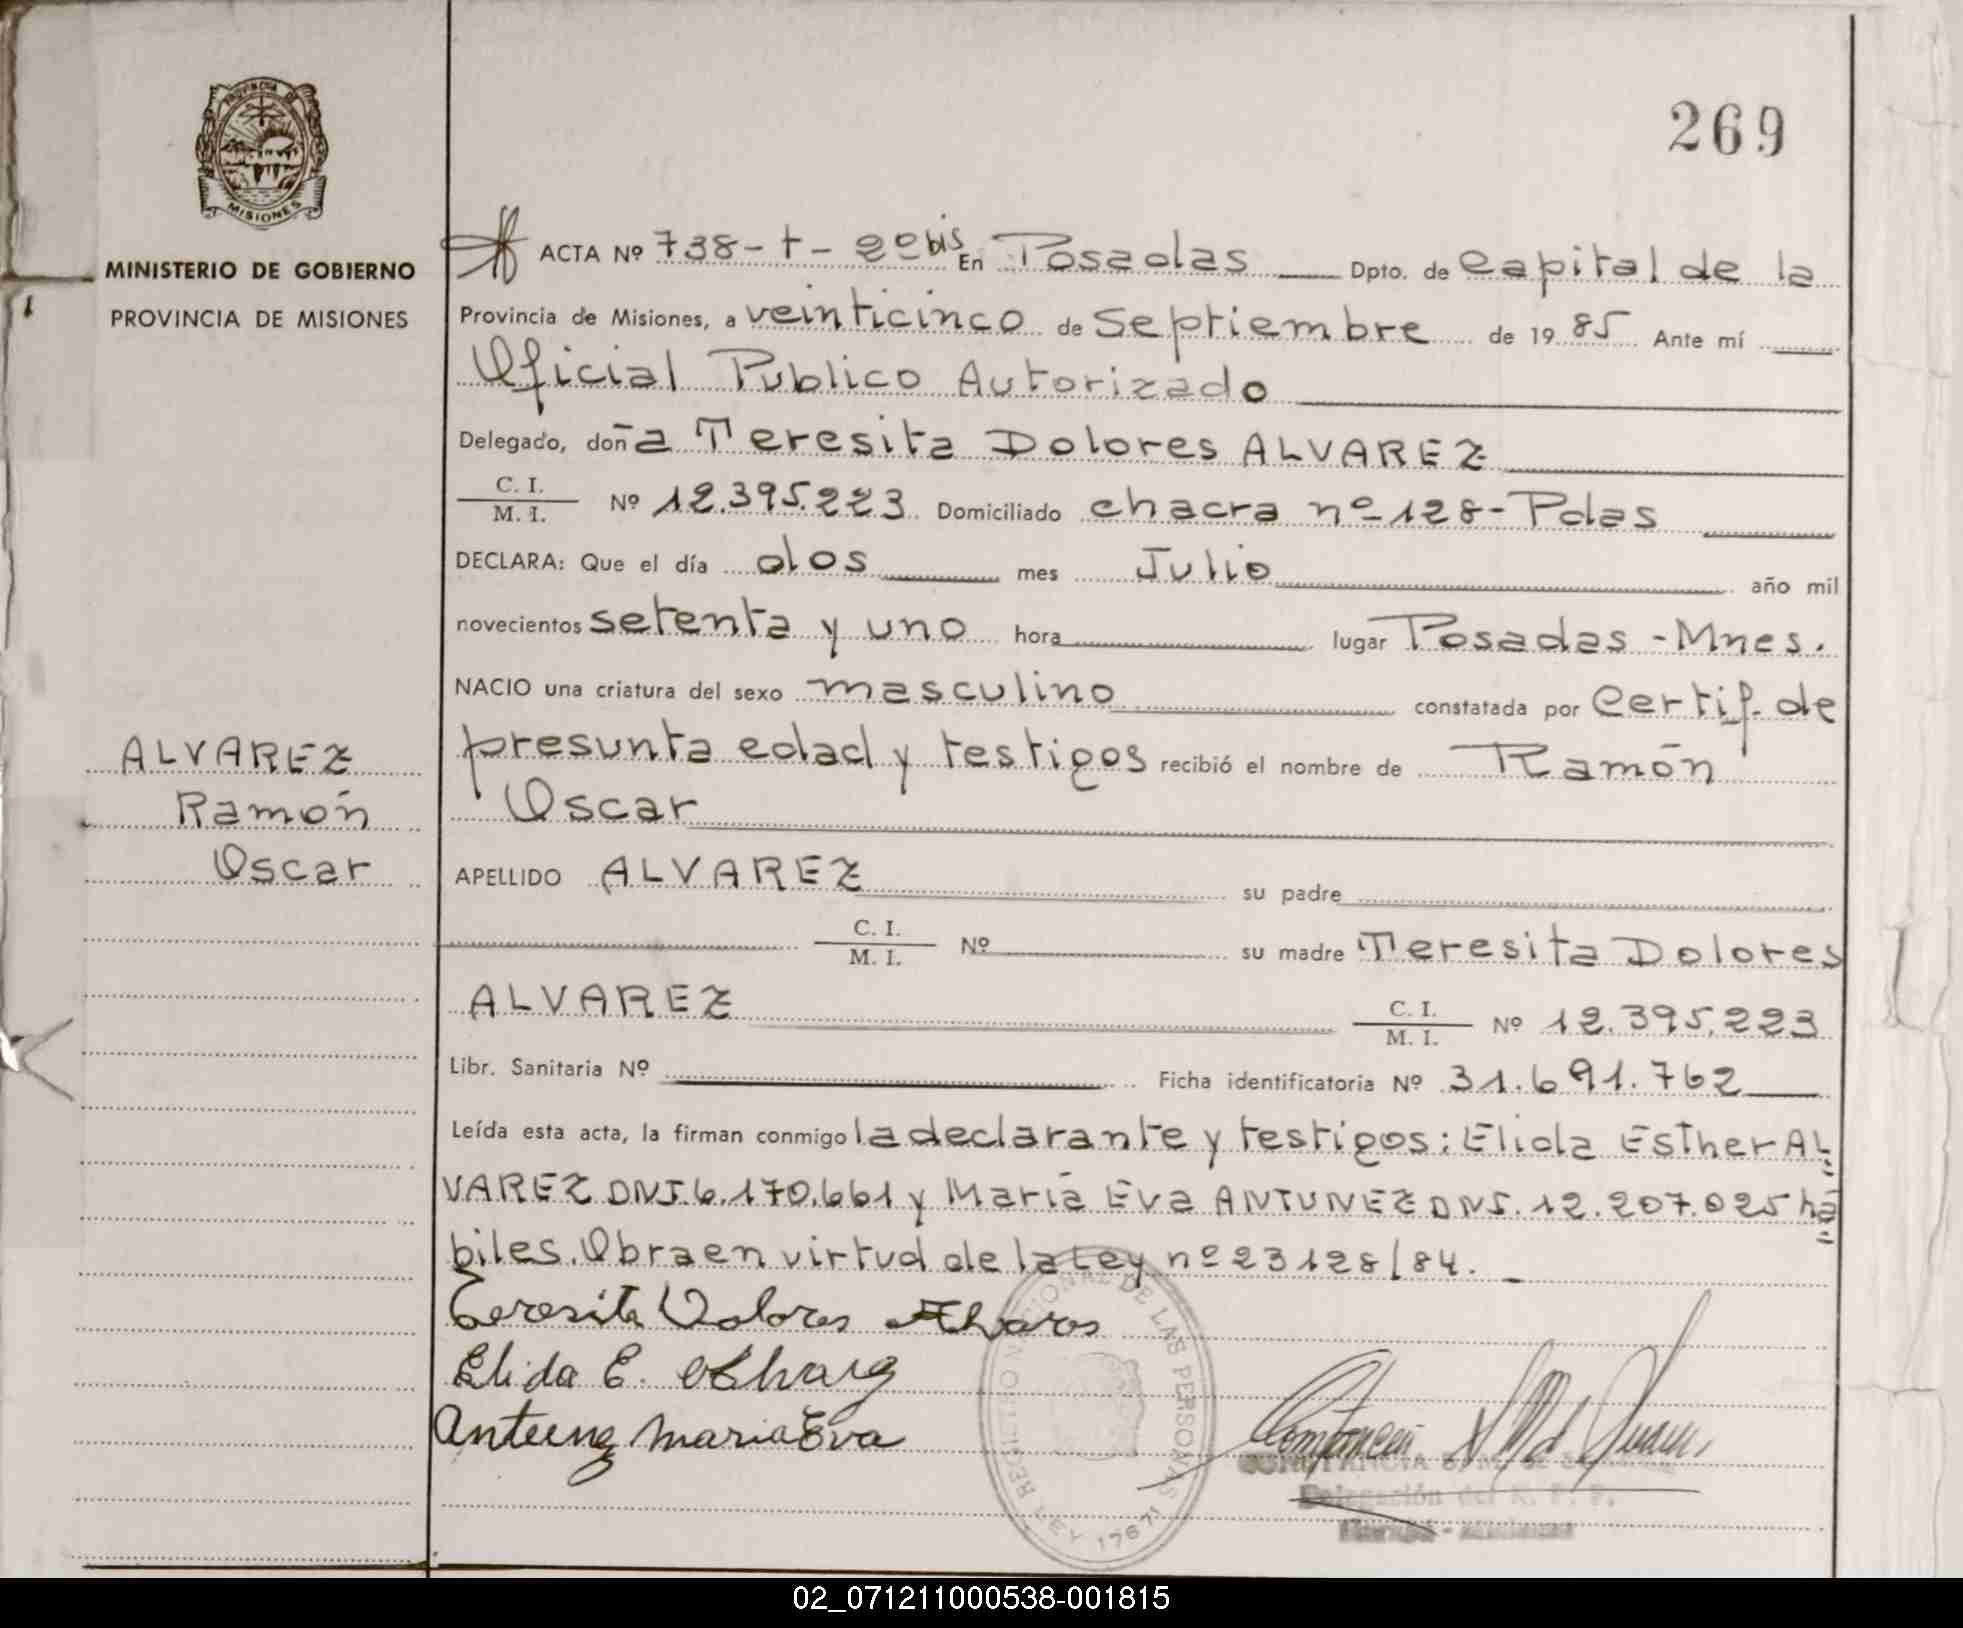 PROVINCIA DE
MISIONES
MINISTERIO DE GOBIERNO
PROVINCIA DE MISIONES
269
ACTA Nº 738-t-2º bis En Posadas Dpto. de Capital de la
Provincia de Misiones, a veinticinco de Septiembre de 1985 Ante mí
Oficial Publico Autorizado
Delegado, doña Teresita Dolores ALVAREZ
C. I.
M. I. Nº 12.395.223 Domiciliado chacra nº 128-Pdas
DECLARA: Que el día dos mes Julio año mil
novecientos setenta y uno hora lugar Posadas-Mnes.
NACIO una criatura del sexo masculino constatada por Certif. de
presunta edad y testigos recibió el nombre de Ramón
Oscar
ALVAREZ
Ramón
Oscar
APELLIDO ALVAREZ su padre
C. I.
M. I. Nº su madre Teresita Dolores
ALVAREZ C. I.
M. I. Nº 12.395.223
Libr. Sanitaria Nº Ficha identificatoria Nº 31.691.762
Leída esta acta, la firman conmigo la declarante y testigos: Elida Esther AL
VAREZ DNI. 6.170.661 y María Eva ANTUNEZ DNI. 12.207.025 há
biles. Obra en virtud de la Ley nº 23128/84.
Teresita Dolores Alvares
Elida E. Alvarez
Antunez Maria Eva
REGISTRO NACIONAL DE LAS PERSONAS
LEY 17671
CONSTANCIA
Delegación del R. P. P.
02_071211000538-001815